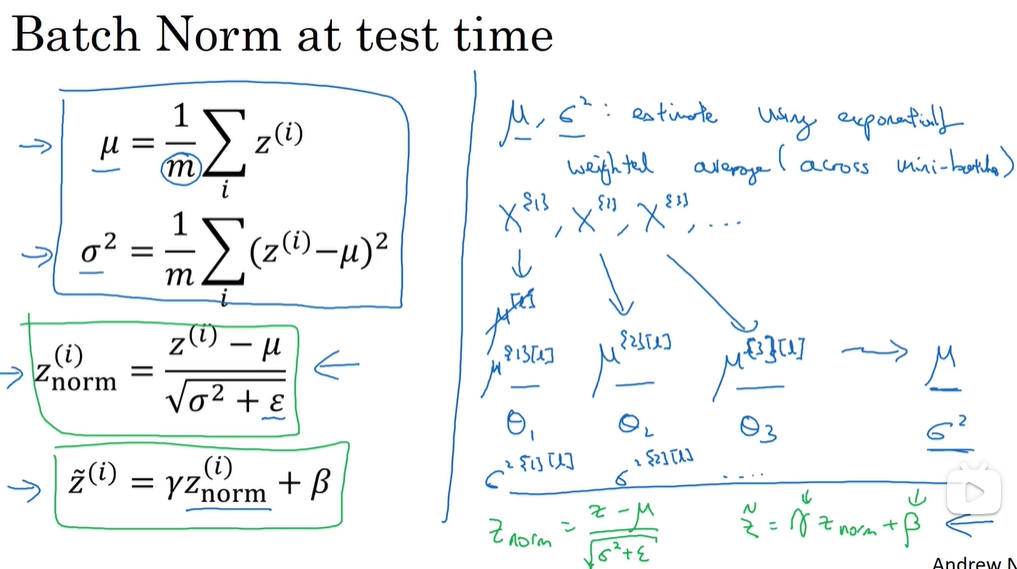 Batch Norm at test time
μ = 1/m ∑_i z^(i)
σ² = 1/m ∑_i (z^(i) − μ)²
z_norm^(i) = (z^(i) − μ) / √(σ² + ε)
z̃^(i) = γ z_norm^(i) + β
μ, σ² : estimate using exponentially
weighted average (across mini-batches)
X^{1}, X^{2}, X^{3}, ...
μ^{1}[l] μ^{2}[l] μ^{3}[l] → μ
θ₁ θ₂ θ₃ σ²
σ²^{1}[l] σ²^{2}[l] ....
z_norm = (z − μ) / √(σ² + ε) z̃ = γ z_norm + β
Andrew N